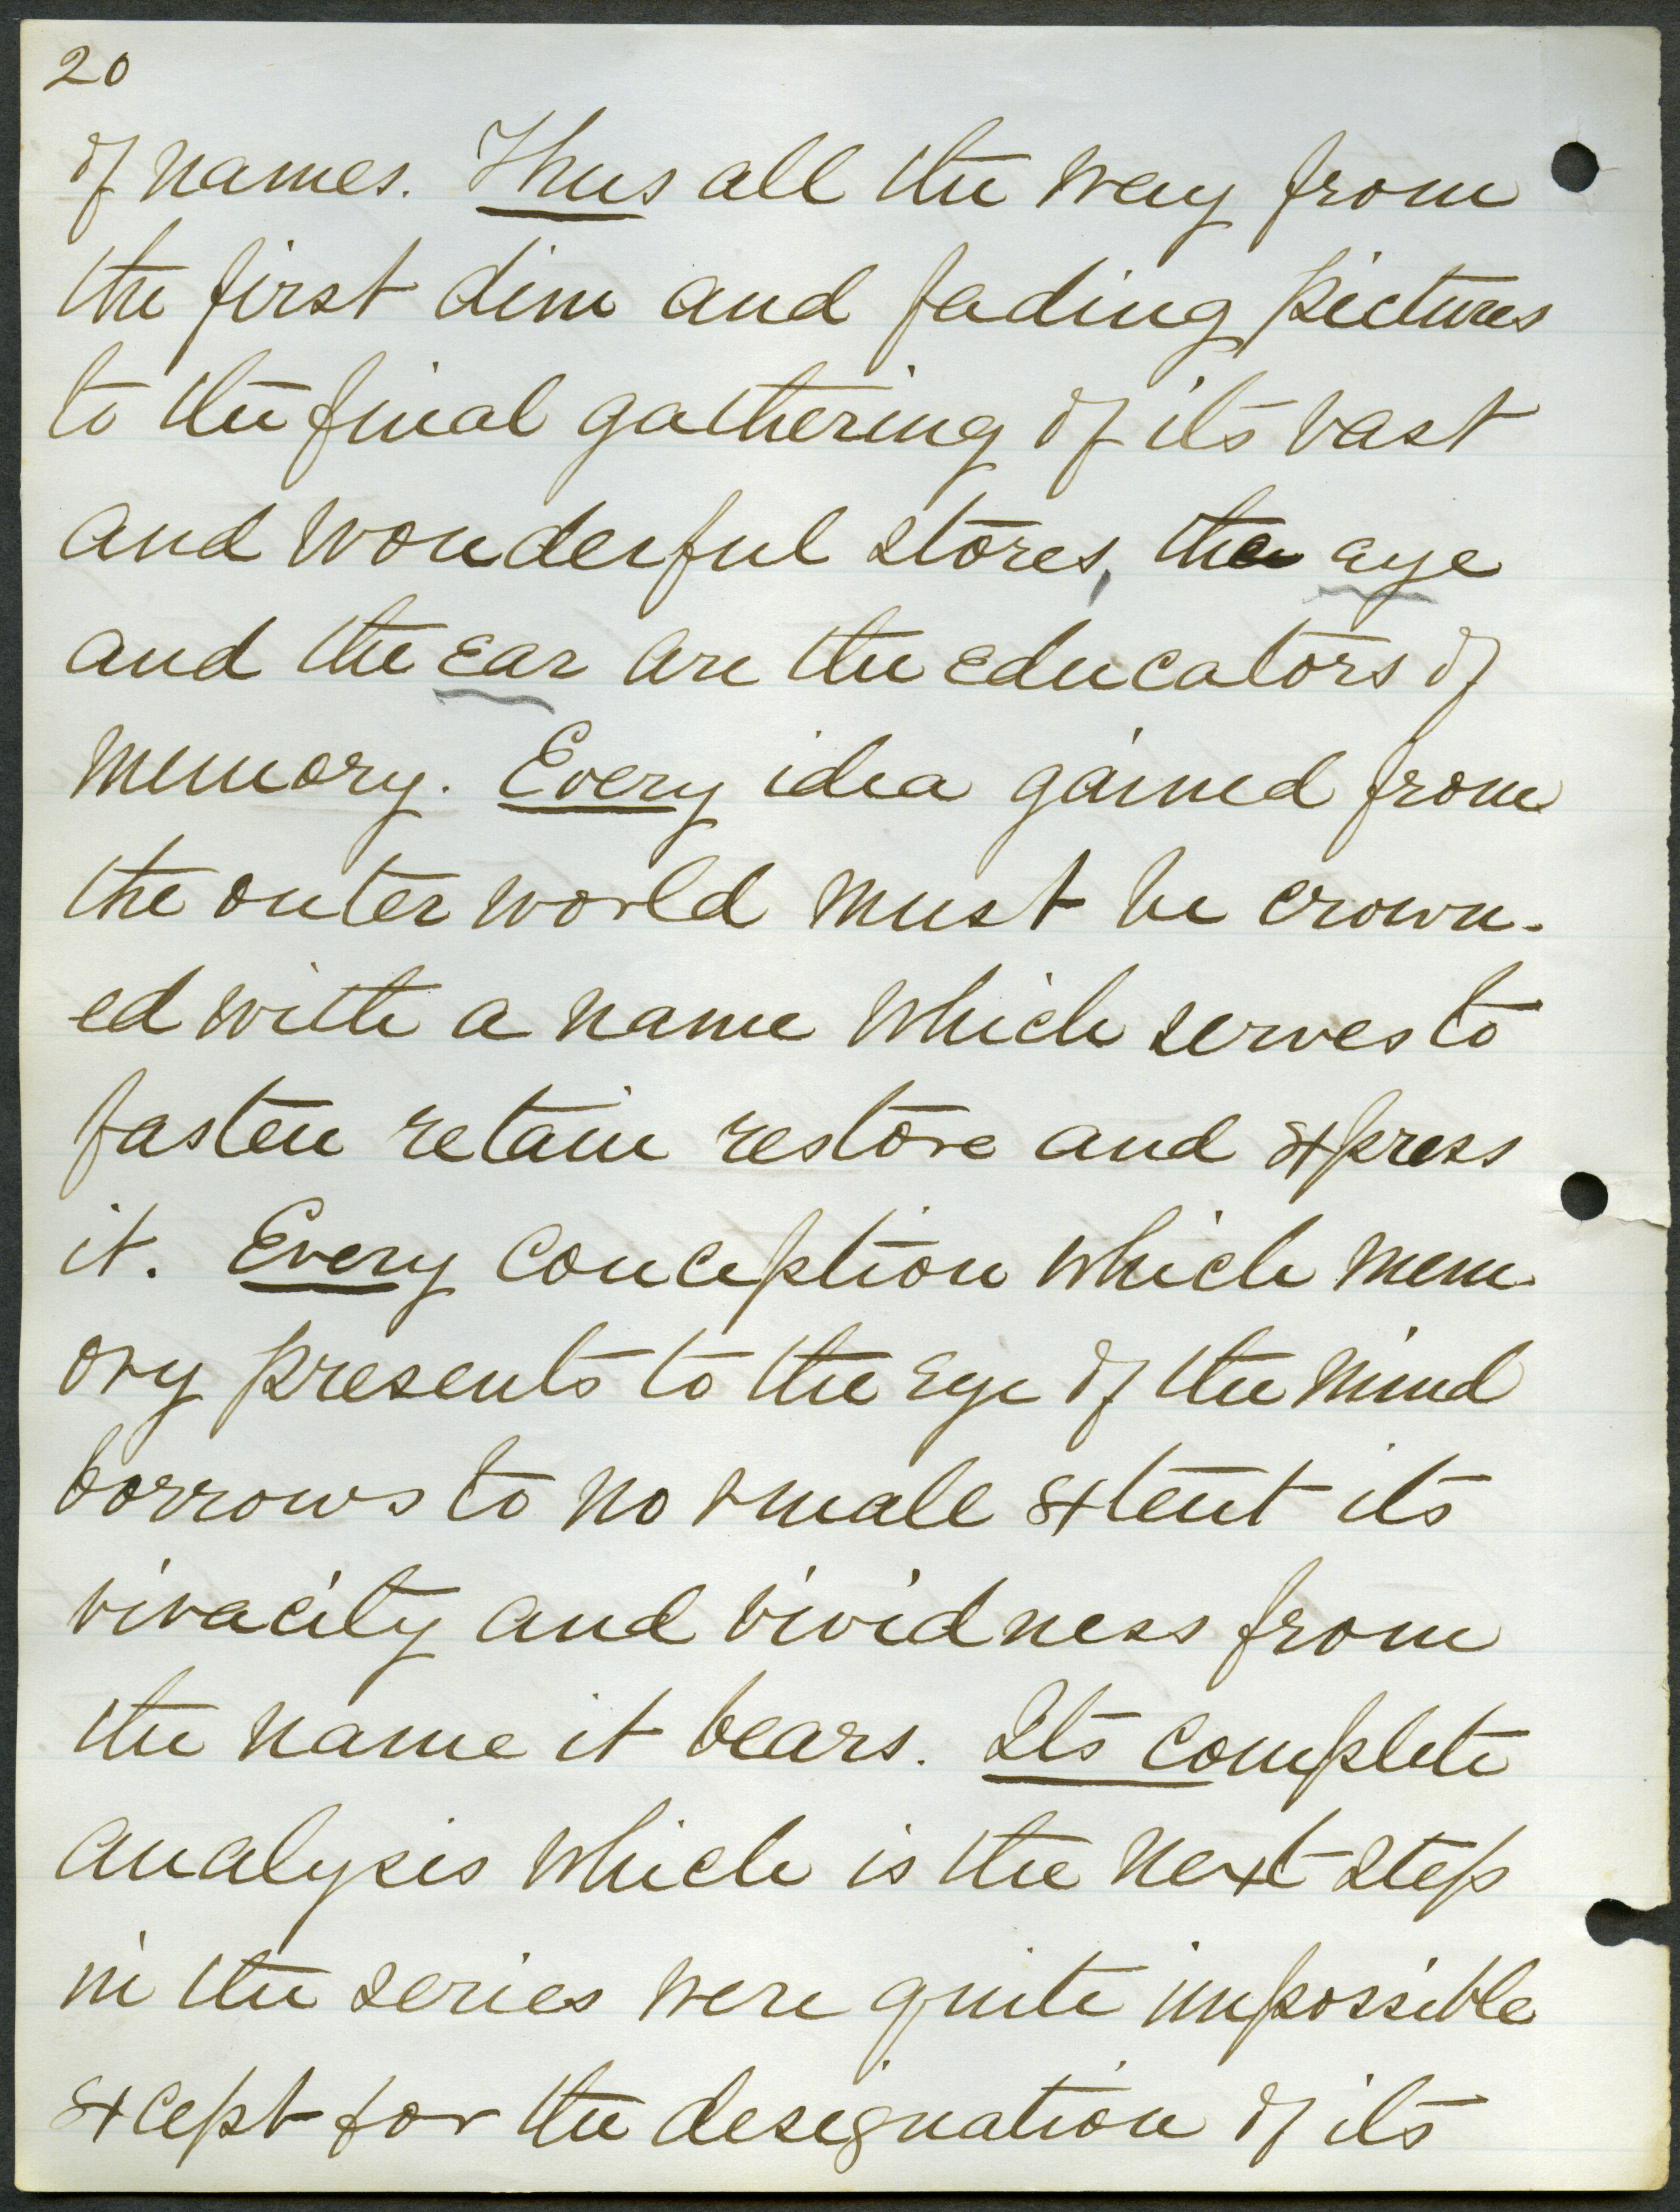 20
of names. Thus all the way from
the first dim and fading pictures
to the final gathering of its vast
and wonderful stores, the eye
and the ear are the educators of
memory. Every idea gained from
the outer world must be crown-
ed with a name which serves to
fasten retain restore and express
it. Every conception which mem-
ory presents to the eye of the mind
borrows to no small extent its
vivacity and vividness from
the name it bears. Its complete
analysis which is the next step
in the series were quite impossible
except for the designation of its